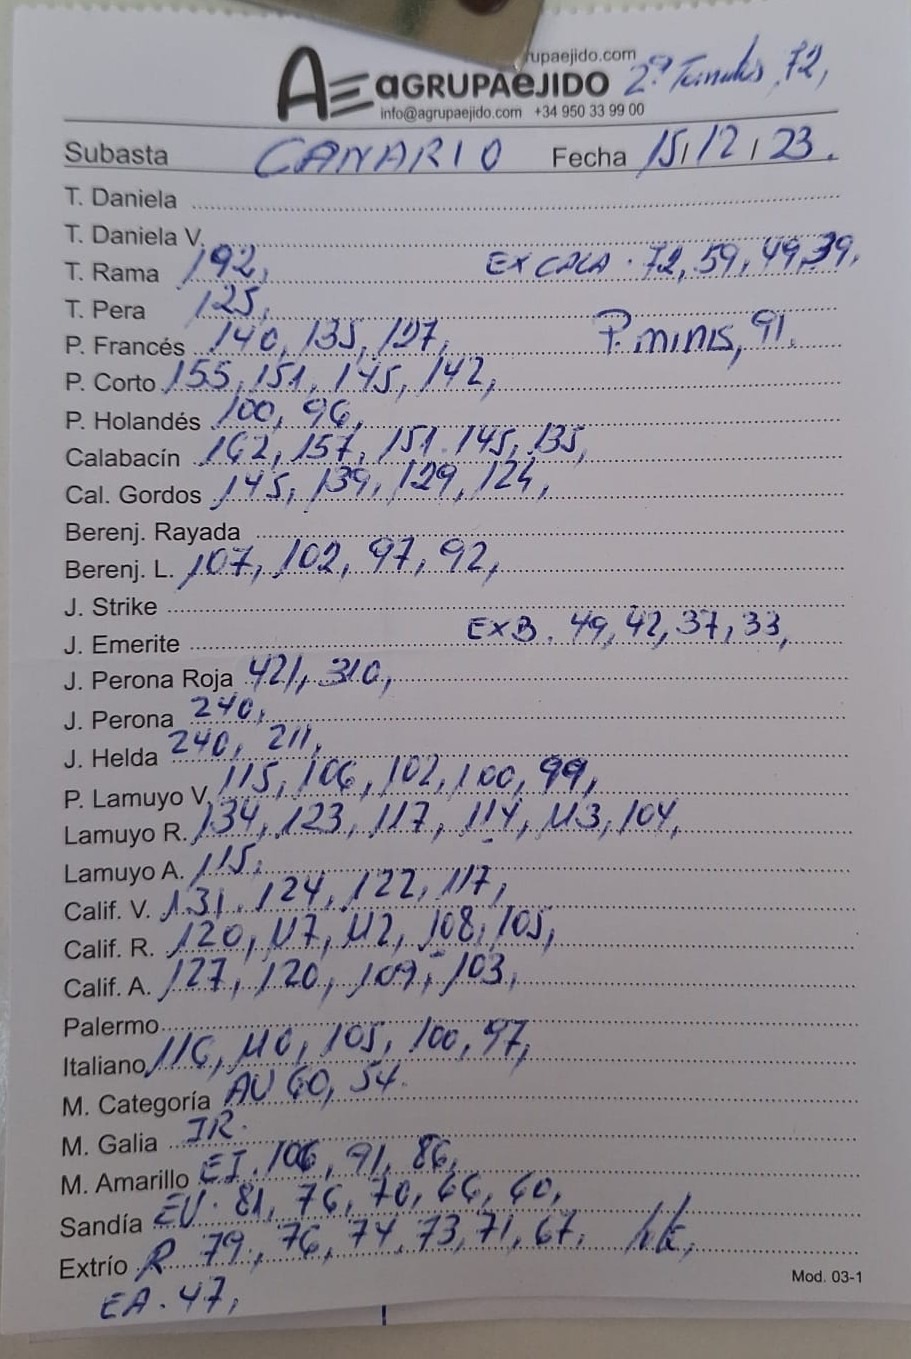 rupaejido.com
AGRUPAEJIDO 2ª 72,
info@agrupaejido.com +34 950 33 99 00
Subasta CANARIO Fecha 15/12/23.
T. Daniela
T. Daniela V.
T. Rama 192, EX CALA. 72, 59, 49, 39,
T. Pera 125,
P. Francés 140, 135, 127, P. minis, 91.
P. Corto 155, 151, 145, 142,
P. Holandés 100, 96,
Calabacín 162, 157, 151. 145, 135,
Cal. Gordos 145, 139, 129, 124,
Berenj. Rayada
Berenj. L. 107, 102, 97, 92,
J. Strike
J. Emerite EXB. 49, 42, 37, 33,
J. Perona Roja 421, 310,
J. Perona 240,
J. Helda 240, 211,
P. Lamuyo V. 115, 106, 102, 100, 99,
Lamuyo R. 134, 123, 117, 114, 113, 104,
Lamuyo A. 115,
Calif. V. 131, 124, 122, 117,
Calif. R. 120, 117, 112, 108, 105,
Calif. A. 127, 120, 109, 103,
Palermo
Italiano 116, 110, 105, 100, 97,
M. Categoría AU 60, 54.
M. Galia IR.
M. Amarillo EI. 106, 91, 86,
Sandía EU. 81, 76, 70, 66, 60,
Extrío R 79, 76, 74, 73, 71, 67,
EA. 47,
Mod. 03-1